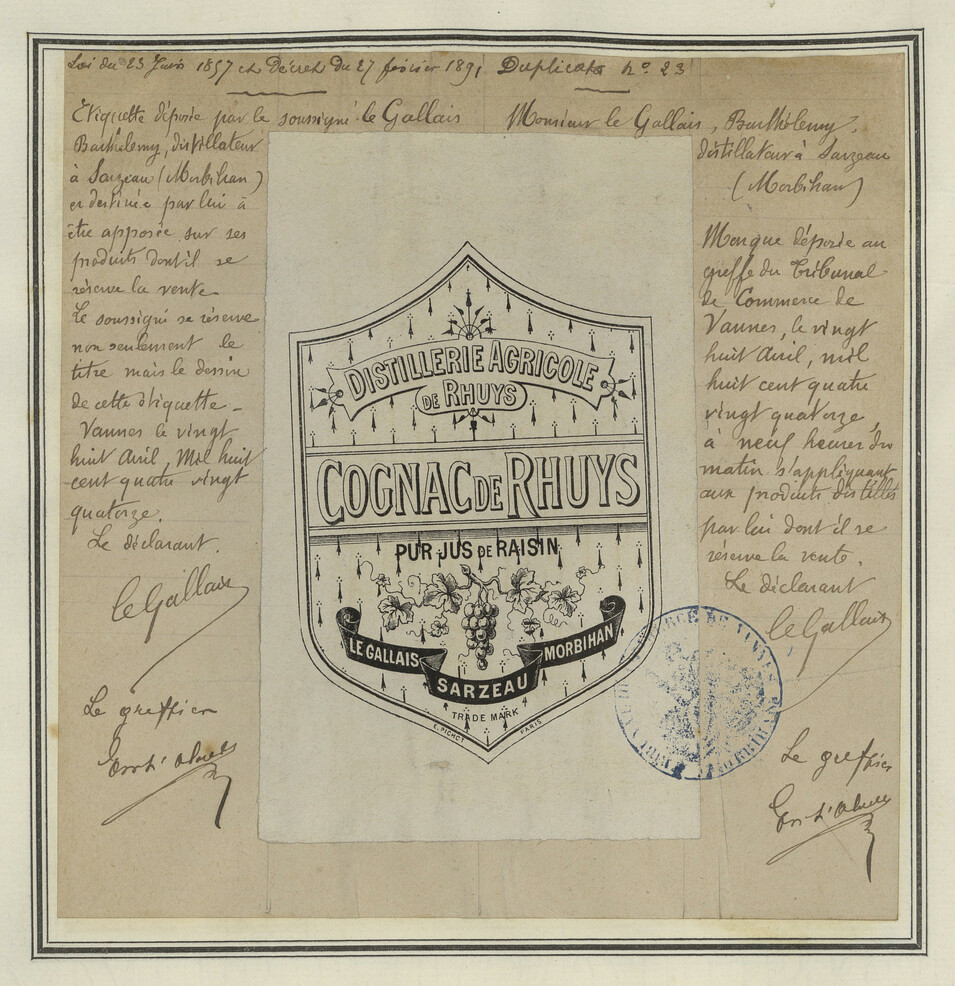 Loi du 23 Juin 1857 et Décret du 27 février 1891 Duplicata nº 23
Etiquette déposée par le soussigné le Gallais
Barthélemy, distillateur
à Sarzeau (Morbihan)
et destinée par lui à
être apposée sur ses
produits dont il se
réserve la vente
Le soussigné se réserve
non seulement le
titre mais le dessin
de cette étiquette -
Vannes le vingt
huit Avril, Mil huit
cent quatre vingt
quatorze.
Le déclarant.
le Gallais
Le greffier
DISTILLERIE AGRICOLE
DE RHUYS
COGNAC DE RHUYS
PUR JUS DE RAISIN
LE GALLAIS
SARZEAU
MORBIHAN
TRADE MARK
E. PICHOT PARIS
Monsieur le Gallais, Barthélemy,
distillateur à Sarzeau
(Morbihan)
Marque déposée au
greffe du Tribunal
de Commerce de
Vannes, le vingt
huit Avril, mil
huit cent quatre
vingt quatorze,
à neuf heures du
matin s'appliquant
aux produits distillés
par lui dont il se
réserve la vente.
Le déclarant
le Gallais
Le greffier
DE VANNES
MORBIHAN